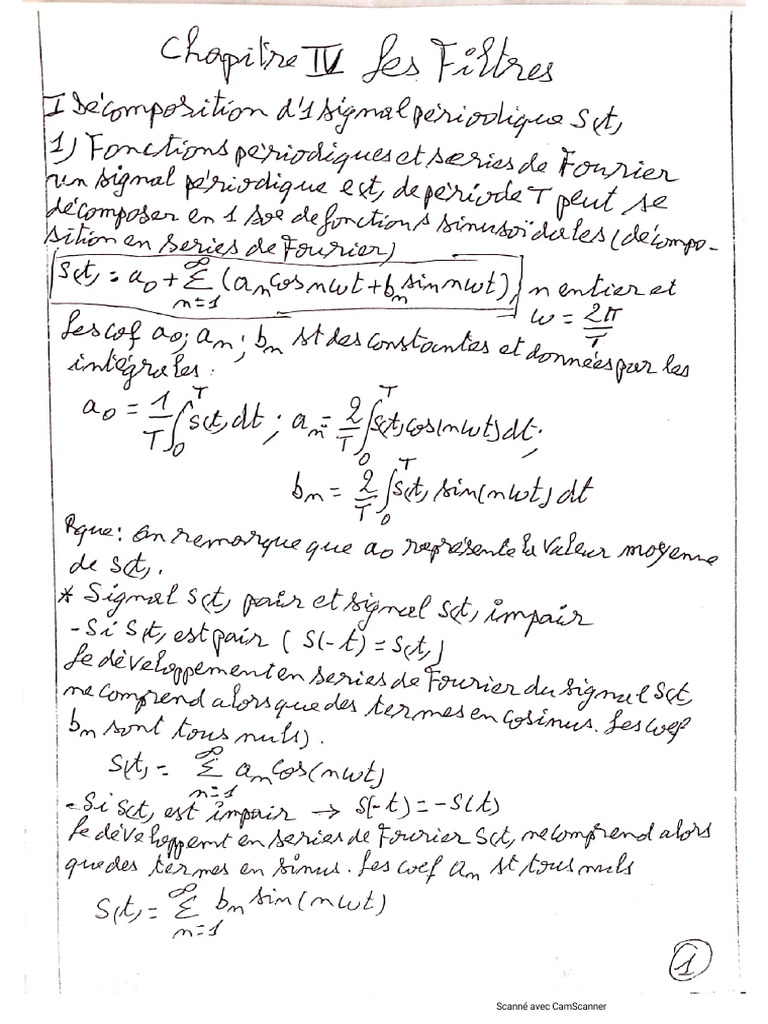 Chapitre IV Les Filtres
I Décomposition d'1 signal périodique S(t)
1) Fonctions périodiques et series de Fourier
un signal périodique e(t), de période T peut se
décomposer en 1 sᵒᵉ de fonctions sinusoïdales (décompo-
sition en series de Fourier)
S(t) = a₀ + ∞ Σ n=1 (aₙ cos nωt + bₙ sin nωt), n entier et
ω = 2π/T
Les cof a₀; aₙ; bₙ st des constantes et données par les
intégrales:
a₀ = 1/T ∫₀ᵀ S(t) dt; aₙ = 2/T ∫₀ᵀ S(t) cos(nωt) dt;
bₙ = 2/T ∫₀ᵀ S(t) sin(nωt) dt
Rque: on remarque que a₀ représente la valeur moyenne
de S(t).
* Signal S(t) pair et signal S(t) impair
- Si S(t) est pair ( S(-t) = S(t) )
Le développement en series de Fourier du signal S(t)
ne comprend alors que des termes en cosinus. Les coef
bₙ sont tous nuls).
S(t) = ∞ Σ n=1 aₙ cos(nωt)
- Si S(t) est impair → S(-t) = -S(t)
Le développemt en series de Fourier S(t) ne comprend alors
que des termes en sinus. Les coef aₙ st tous nuls
S(t) = ∞ Σ n=1 bₙ sin(nωt)
1
Scanné avec CamScanner